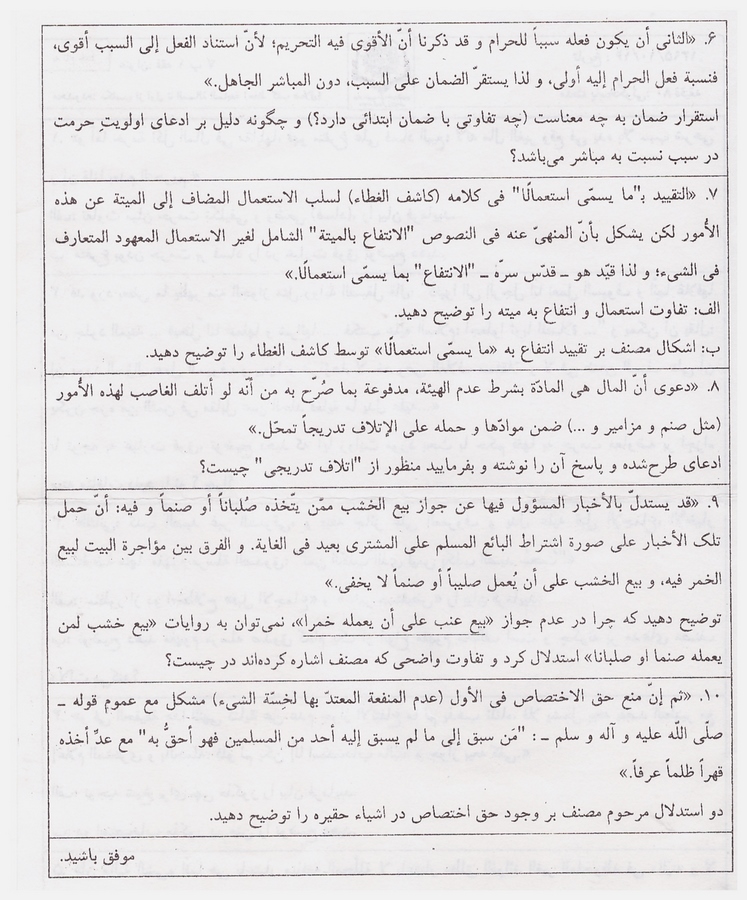 ۶. «الثانی أن یکون فعله سبباً للحرام و قد ذکرنا أنّ الأقوی فیه التحریم؛ لأنّ استناد الفعل إلی السبب أقوی،
فنسبة فعل الحرام إلیه أولی، و لذا یستقرّ الضمان علی السبب، دون المباشر الجاهل.»
استقرار ضمان به چه معناست (چه تفاوتی با ضمان ابتدائی دارد؟) و چگونه دلیل بر ادعای اولویتِ حرمت
در سبب نسبت به مباشر می‌باشد؟
۷. «التقیید بـ"ما یسمّی استعمالًا" فی کلامه (کاشف الغطاء) لسلب الاستعمال المضاف إلی المیتة عن هذه
الأُمور لکن یشکل بأنّ المنهیّ عنه فی النصوص "الانتفاع بالمیتة" الشامل لغیر الاستعمال المعهود المتعارف
فی الشیء؛ و لذا قیّد هو ــ قدّس سرّه ــ "الانتفاع" بما یسمّی استعمالًا.»
الف: تفاوت استعمال و انتفاع به میته را توضیح دهید.
ب: اشکال مصنف بر تقیید انتفاع به «ما یسمّی استعمالًا» توسط کاشف الغطاء را توضیح دهید.
۸. «دعوی أنّ المال هی المادّة بشرط عدم الهیئة، مدفوعة بما صُرّح به من أنّه لو أتلف الغاصب لهذه الأُمور
(مثل صنم و مزامیر و ...) ضمن موادّها و حمله علی الإتلاف تدریجاً تمحّل.»
ادعای طرح‌شده و پاسخ آن را نوشته و بفرمایید منظور از "اتلاف تدریجی" چیست؟
۹. «قد یستدلّ بالأخبار المسؤول فیها عن جواز بیع الخشب ممّن یتّخذه صُلباناً أو صنماً و فیه: أنّ حمل
تلک الأخبار علی صورة اشتراط البائع المسلم علی المشتری بعید فی الغایة. و الفرق بین مؤاجرة البیت لبیع
الخمر فیه، و بیع الخشب علی أن یُعمل صلیباً أو صنماً لا یخفی.»
توضیح دهید که چرا در عدم جواز «بیع عنب علی أن یعمله خمرا»، نمی‌توان به روایات «بیع خشب لمن
یعمله صنما او صلبانا» استدلال کرد و تفاوت واضحی که مصنف اشاره کرده‌اند در چیست؟
۱۰. «ثم إنّ منع حق الاختصاص فی الأول (عدم المنفعة المعتدّ بها لخِسّة الشیء) مشکل مع عموم قوله ــ
صلّی اللّه علیه و آله و سلم ــ : "مَن سبق إلی ما لم یسبق إلیه أحد من المسلمین فهو أحقُّ به" مع عدِّ أخذه
قهراً ظلماً عرفاً.»
دو استدلال مرحوم مصنف بر وجود حق اختصاص در اشیاء حقیره را توضیح دهید.
موفق باشید.